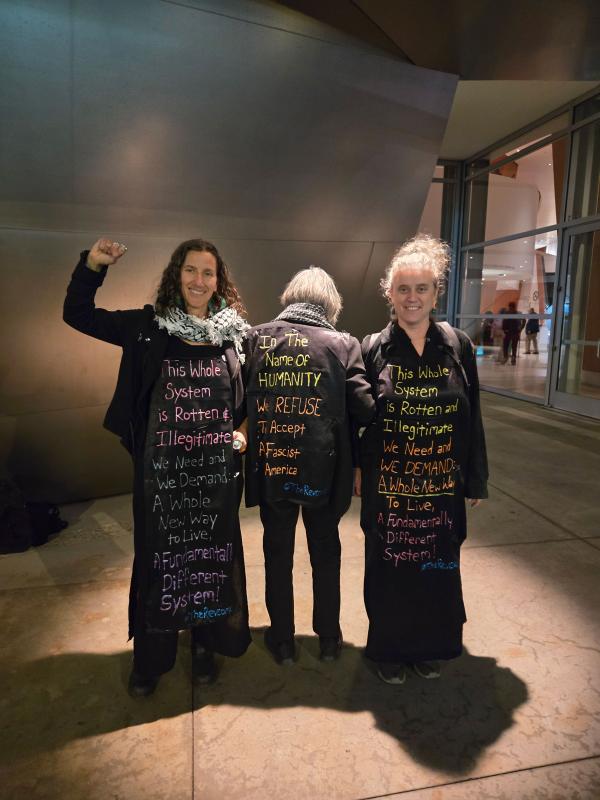 This Whole
System
is Rotten &
Illegitimate
We Need and
We Demand:
A Whole
New Way
to Live,
A Fundamentally
Different
System!
@TheRevcoms
In The
Name Of
HUMANITY
We REFUSE
To Accept
A Fascist
America
@TheRevcoms
This Whole
System
is Rotten and
Illegitimate
We Need and
WE DEMAND:
A Whole New Way
To Live,
A Fundamentally
Different
System!
@TheRevcoms